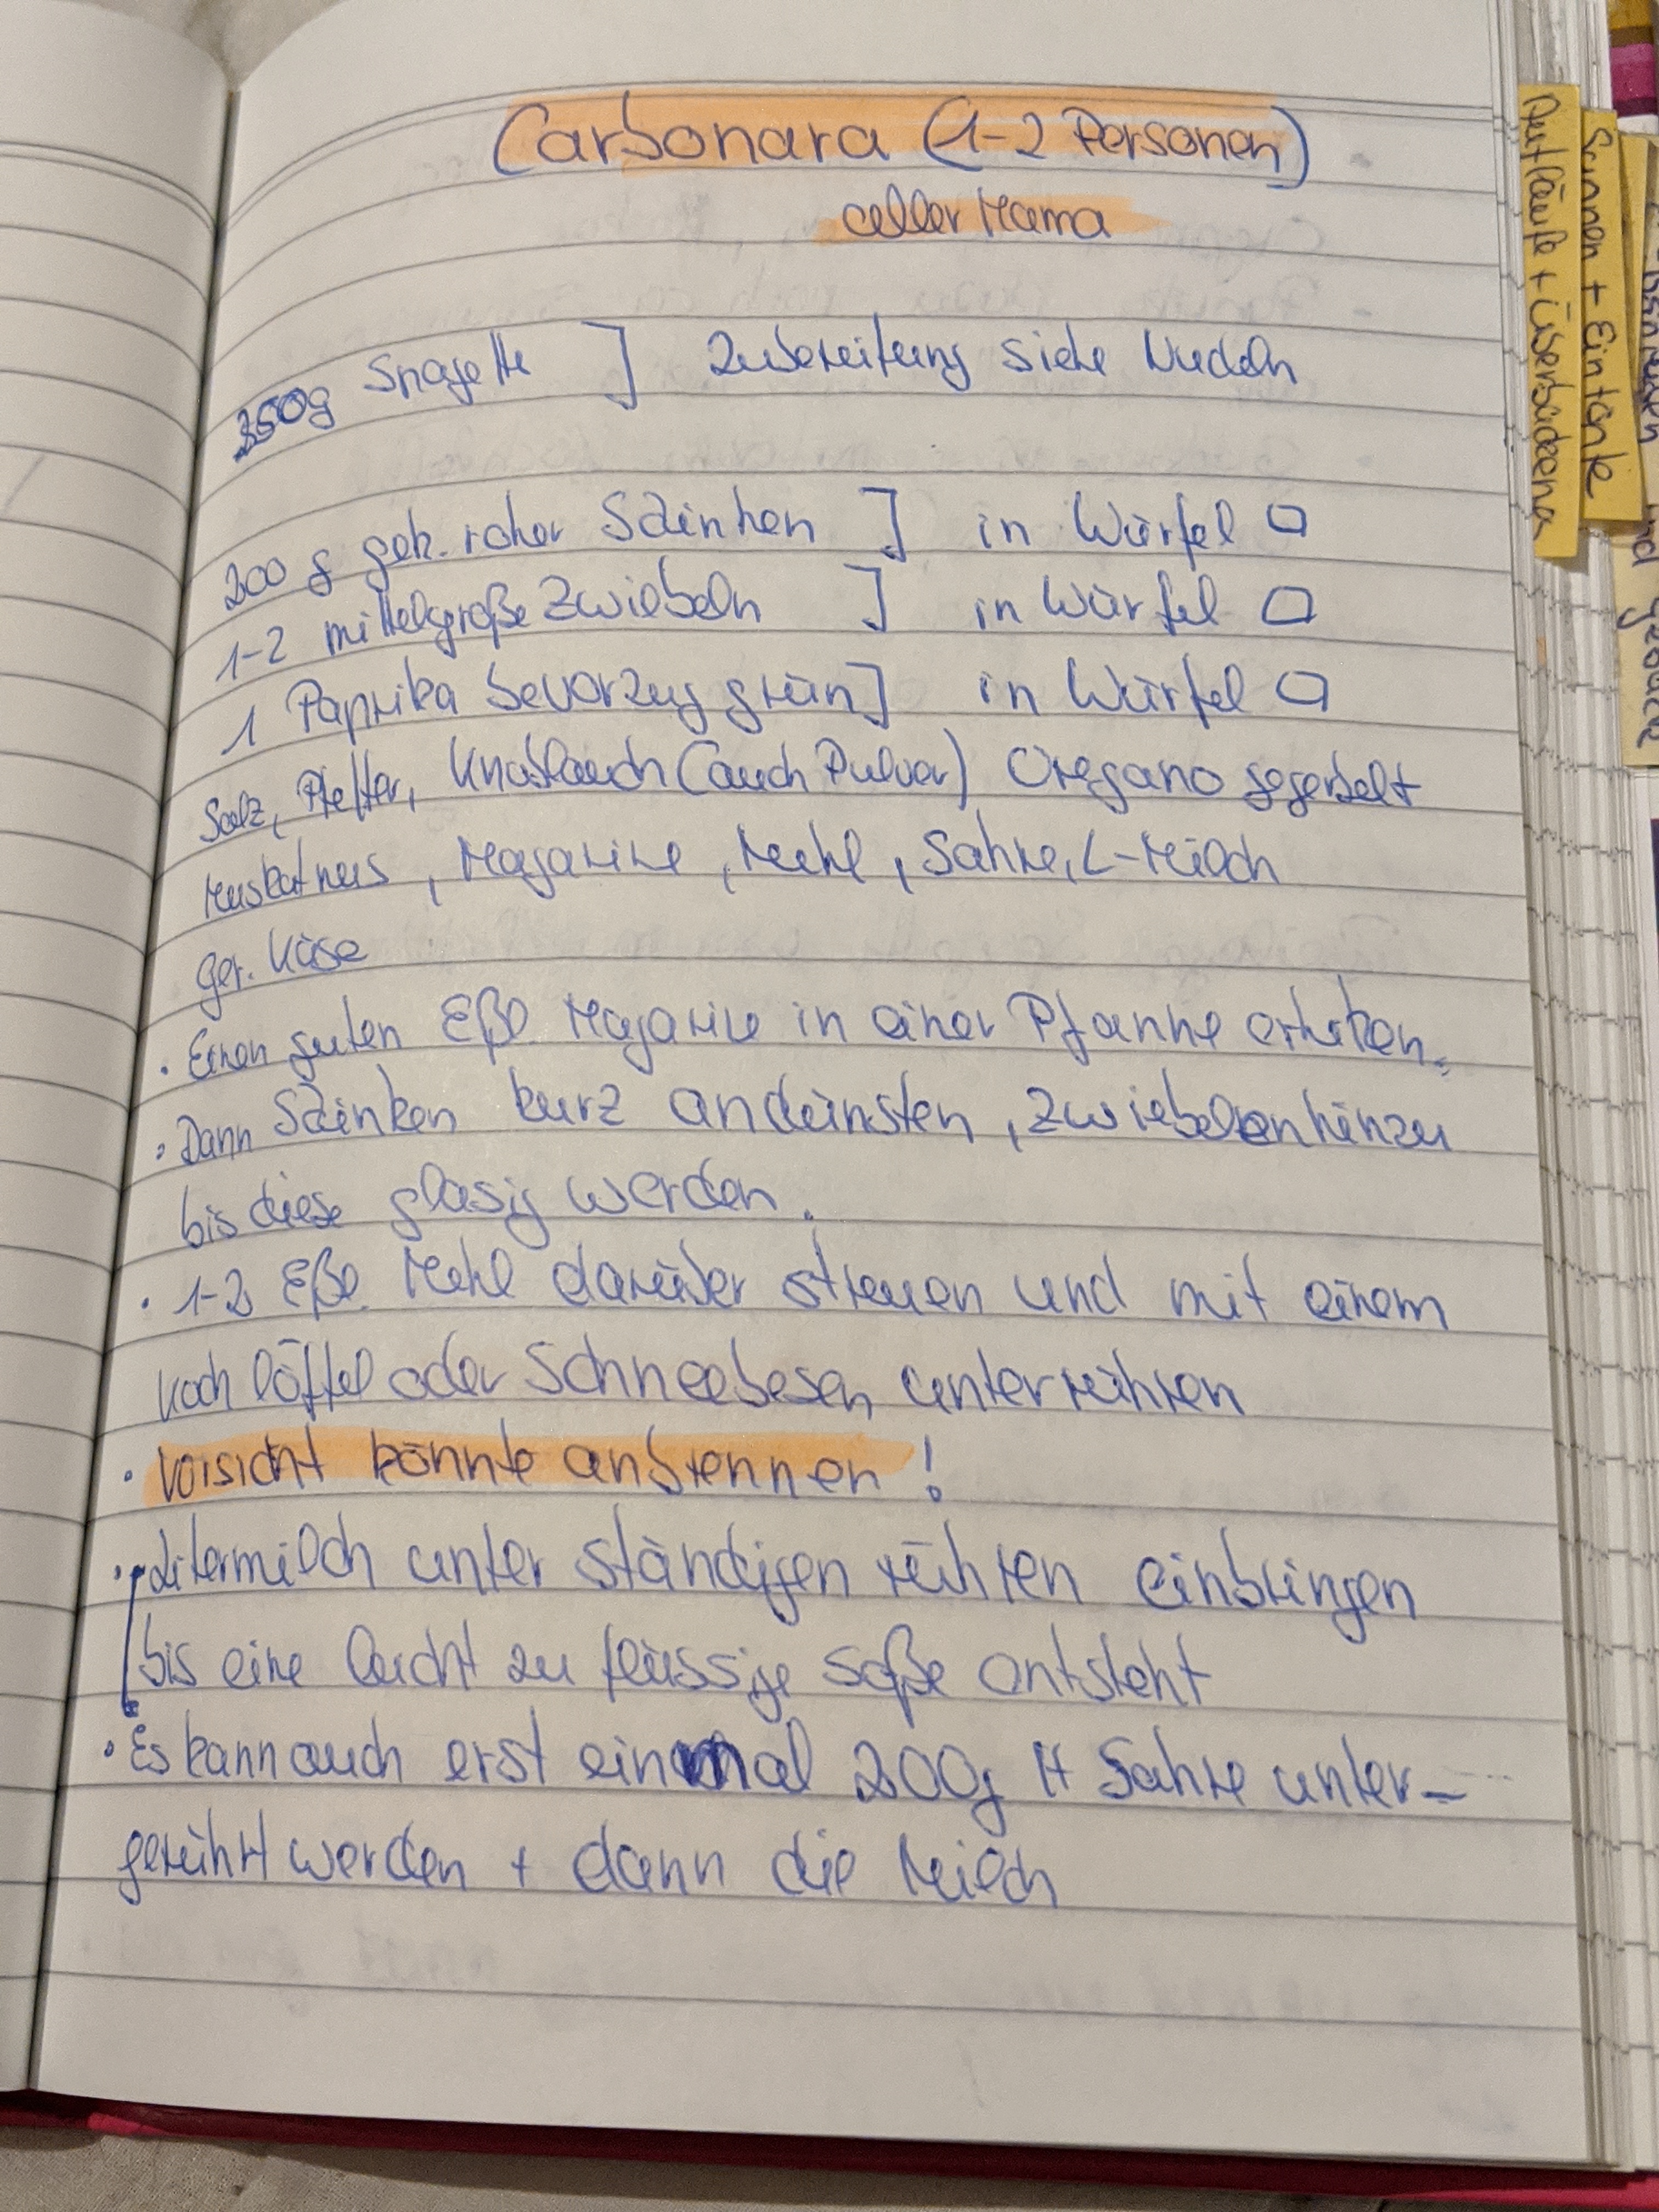 Carbonara (1-2 Personen)
aller Mama
350g Spagette ] Zubereitung siehe Nudeln
200 g gek. roher Schinken ] in Würfel
1-2 mittelgroße Zwiebeln ] in Würfel
1 Paprika bevorzug grün ] in Würfel
Salz, Pfeffer, Knoblauch (auch Pulver) Oregano gegerbelt
Muskatnuss, Magarine, Mehl, Sahne, L-Milch
Ger. Käse
· Einen guten Eßl Magarine in einer Pfanne erhitzen.
· Dann Schinken kurz andünsten, Zwiebeln hinzu
bis diese glasig werden.
· 1-2 Eßl. Mehl darüber streuen und mit einem
Koch löffel oder Schneebesen unterrühren
· Vorsicht könnte anbrennen!
· Litermilch unter ständigen rühren einbringen
bis eine leicht zu flüssige Soße entsteht
· Es kann auch erst einmal 200g H Sahne unter-
gerührt werden + dann die Milch
Aufläufe + Überbackena
Suppen + Eintöpfe